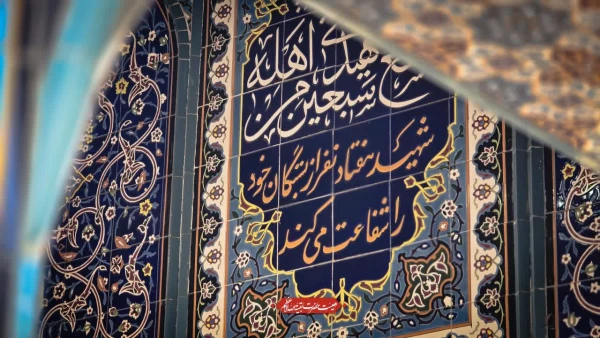 اهله
سبعین من
شهید هفتاد نفر از بستگان خود
را شفاعت می کند